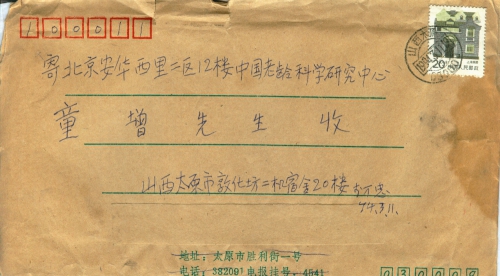 100011
寄北京安华西里二区12楼中国老龄科学研究中心
20
童增先生收
山西太原市敦化坊二机宿舍20楼
94.3.11.
地址：太原市胜利街一号
电话：382091电报挂号：4641
030000